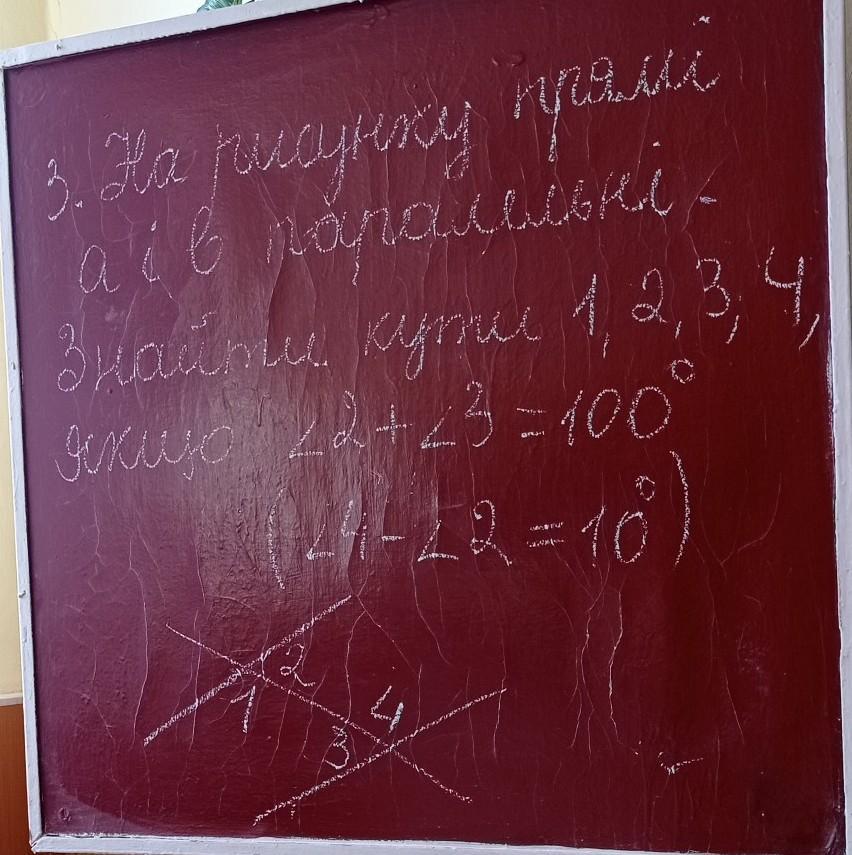 3. На рисунку прямі
а і в паралельні.
Знайти кути 1, 2, 3, 4,
якщо ∠2+∠3=100°
(∠4-∠2=10°)
2
1
4
3